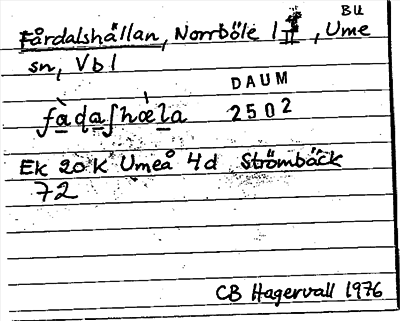 BU
Fårdalshällan, Norrböle 1, Ume
sn, Vbl
DAUM
2502
fàdaʃhǽla
Ek 20 K Umeå 4d Strömbäck
72
CB Hagervall 1976